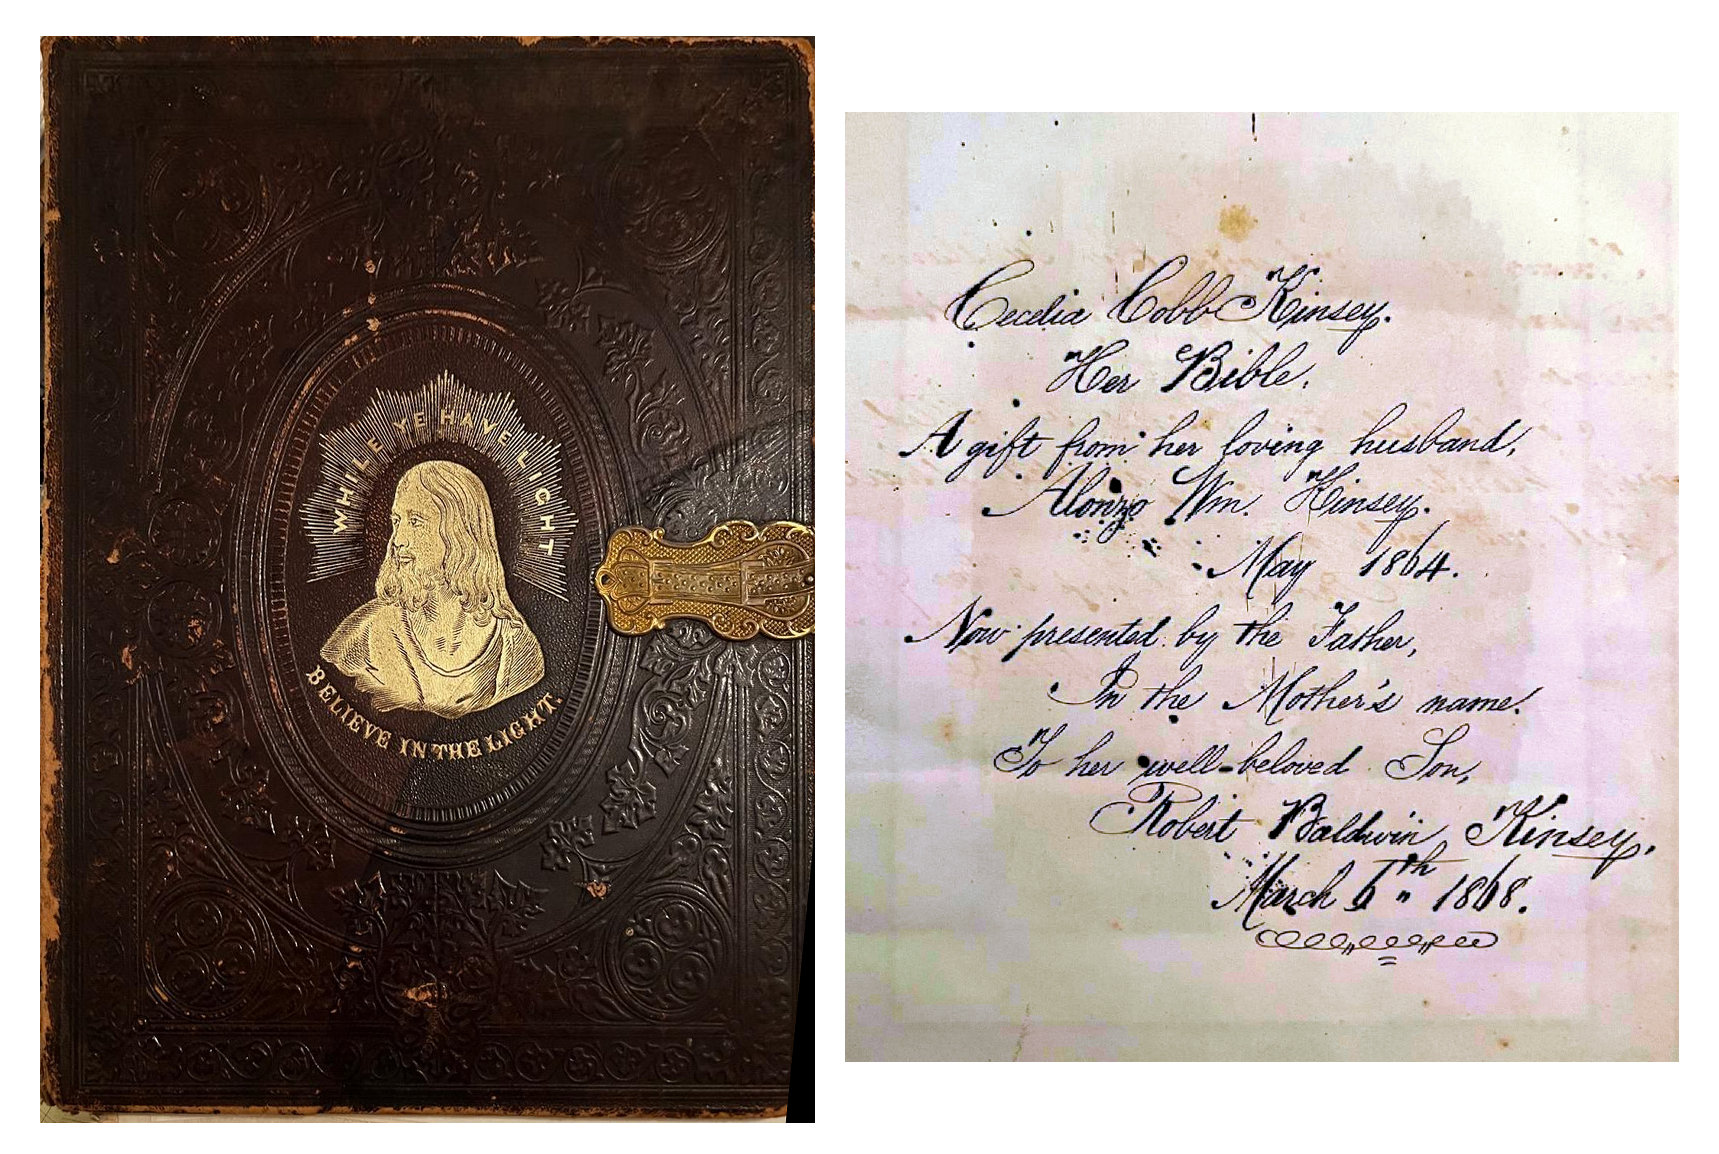 WHILE YE HAVE LIGHT
BELIEVE IN THE LIGHT.
Cecelia Cobb Kinsey.
Her Bible.
A gift from her loving husband,
Alonzo Wm. Kinsey.
May 1864.
Now presented by the Father,
In the Mother's name.
To her well-beloved Son,
Robert Baldwin Kinsey.
March 6th 1868.